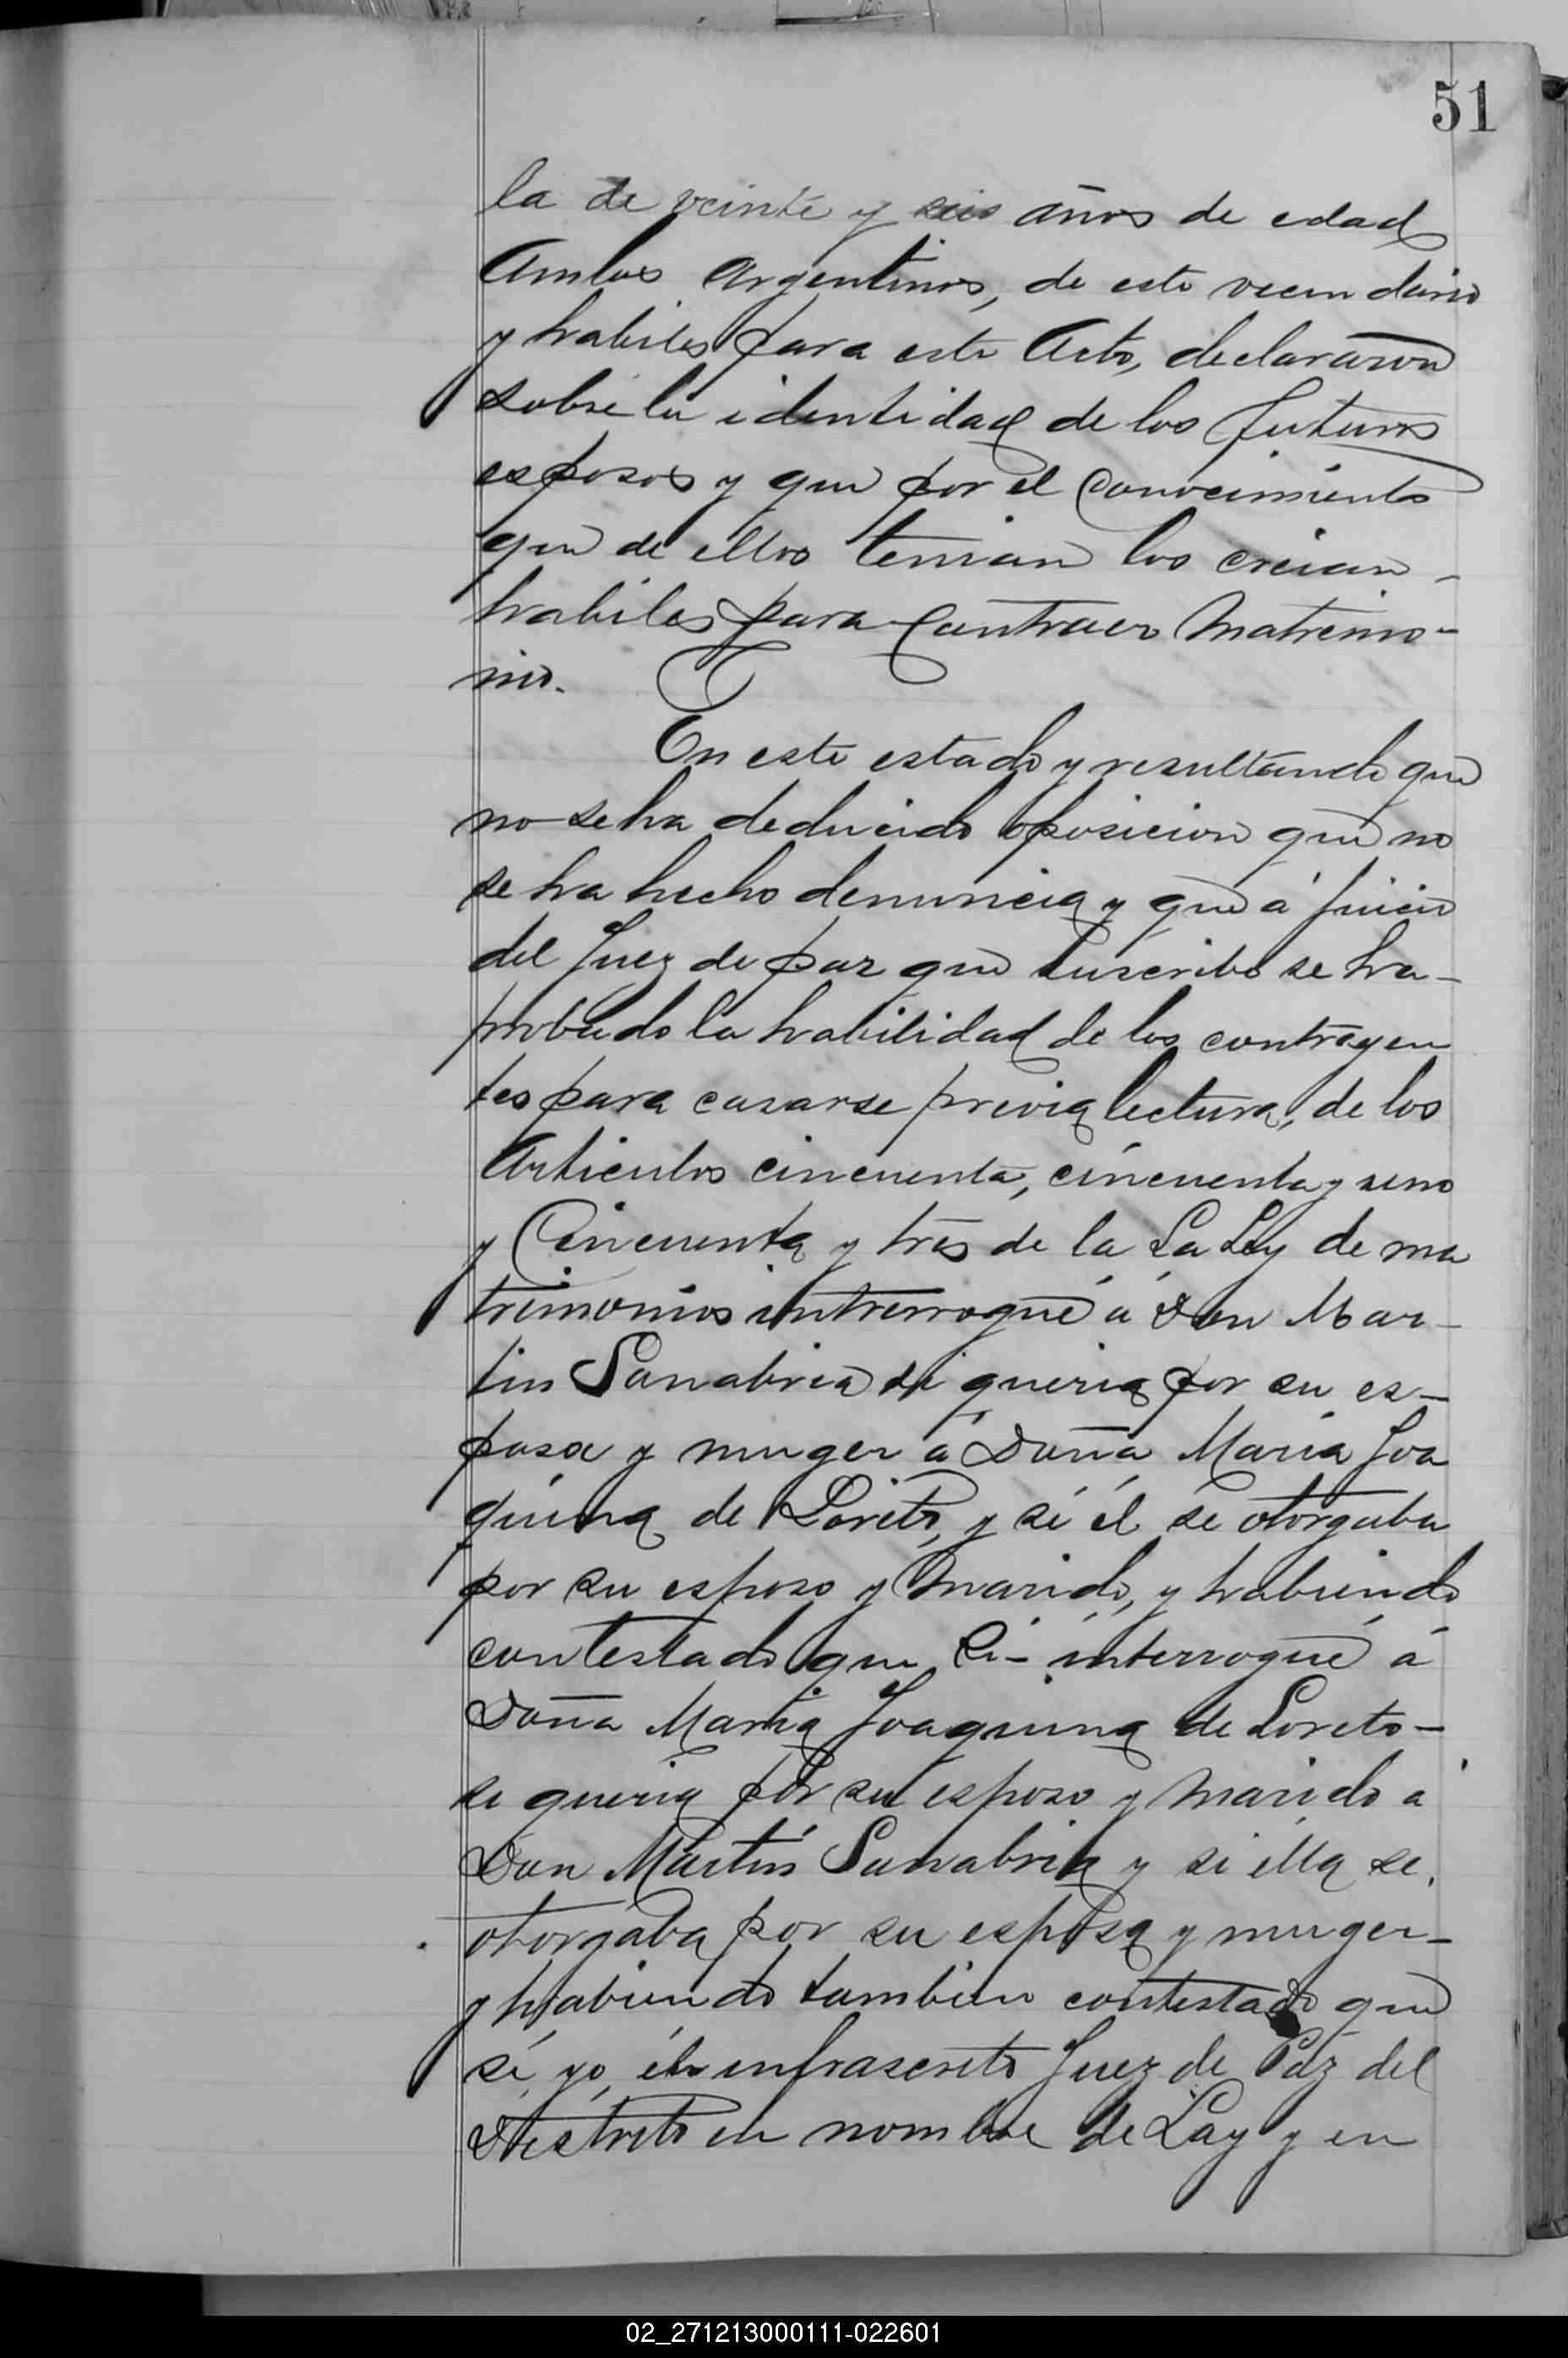 51
la de veinte y seis años de edad
Ambos Argentinos, de este vecin dario
y habiles para este Acto, declararon
sobre la identidad de los futuros
esposos y que por el conocimiento
que de ellos tenian los creian -
habiles para Contraer Matrimo-
nio.
En este estado y resultando que
no se ha deducido oposicion que no
se ha hecho denuncia y que á juicio
del Juez de paz que suscribe se ha -
probado la habilidad de los contrayen
tes para casarse previa lectura, de los
Articulos cincuenta, cincuenta y uno
y Cincuenta y tres de la La Ley de ma
trimonios intrerrogué á Don Mar-
tin Sanabria si queria por su es-
posa y muger á Doña Maria Joa
quina de Loreto, y si él se otorgaba
por su esposo y Marido, y habiendo
contestado que Si - interrogué á
Doña Maria Joaquina de Loreto -
si queria por su esposo y marido á
Don Martin Sanabria y si ella se
otorgaba por su esposa y muger -
y habiendo tambien contestado que
sí, yo, el infrascrito Juez de Paz del
Distrito en nombre de Lay y en
02_271213000111-022601